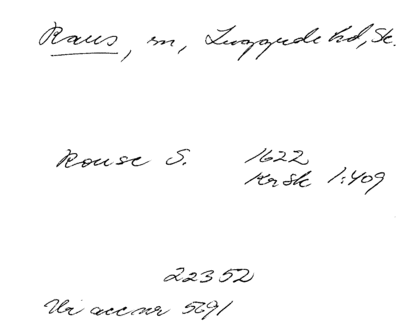 Raus, sn, Luggude hd, Sk.
Rouse S. 1622
KrSk 1:409
22352
Ur acc nr 5691